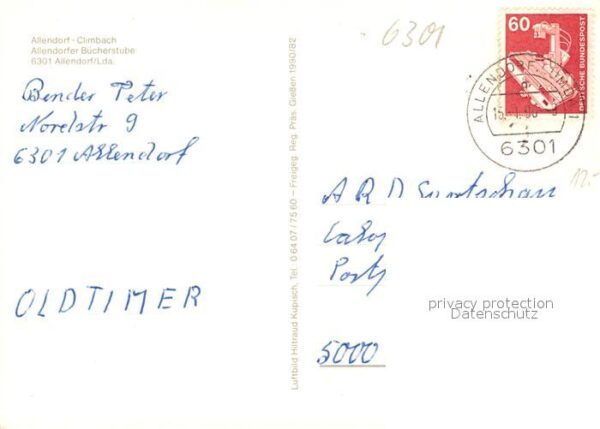 Allendorf - Climbach
Allendorfer Bücherstube
6301 Allendorf/Lda.
Bender Peter
Nordstr 9
6301 Allendorf
OLDTIMER
Luftbild Hiltraud Kupisch, Tel. 0 64 07 / 75 60 – Freigeg. Reg. Präs. Gießen 1990/82
6301
60
DEUTSCHE BUNDESPOST
ALLENDORF
6301
12.-
ARD
5000
privacy protection
Datenschutz